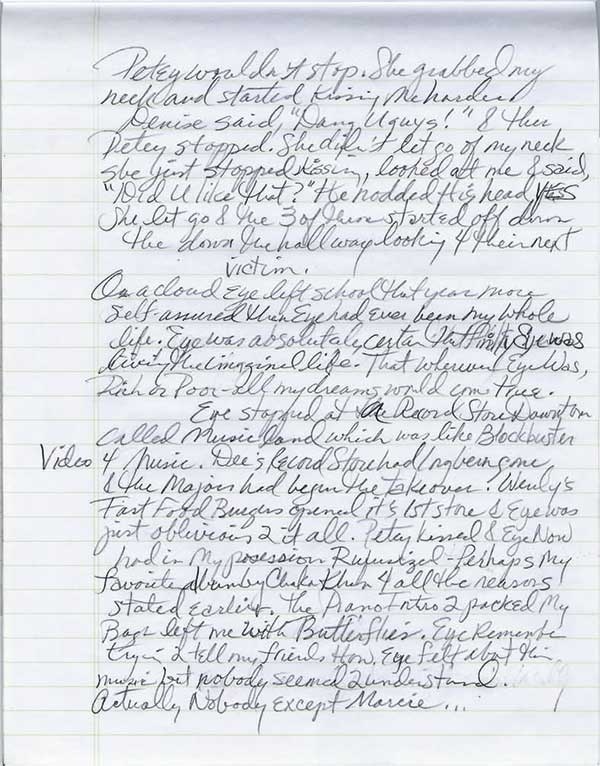 Petey wouldn't stop. She grabbed my
neck and started kissing me harder
Denise said, "Dang U guys!" & then
Petey stopped. She didn't let go of my neck
she just stopped kissing, looked at me & said,
"Did U like that?" He nodded His head yes
She let go & the 3 of them started off down
the down the hallway looking 4 their next
victim.
On a cloud Eye left school that year more
self-assured than Eye had ever been my whole
life. Eye was absolutely certain that Eye was
living the imagined life. That wherever Eye was,
Rich or Poor - all my dreams would come true.
Eye stopped at a Record Store Downtown
called Musicland which was like Blockbuster
Video 4 Music. Dee's Record Store had long been gone
& the Majors had begun the takeover. Wendy's
Fast Food Burgers opened it's 1st store & Eye was
just oblivious 2 it all. Petey kissed & Eye Now
had in My possession Rufusized - Perhaps My
favorite album by Chaka Khan 4 all the reasons
stated earlier. The Piano Intro 2 packed My
Bags left me with Butterflies. Eye Remember
tryin 2 tell my friends How Eye felt about this
music but nobody seemed 2 understand.
Actually Nobody Except Marcie...